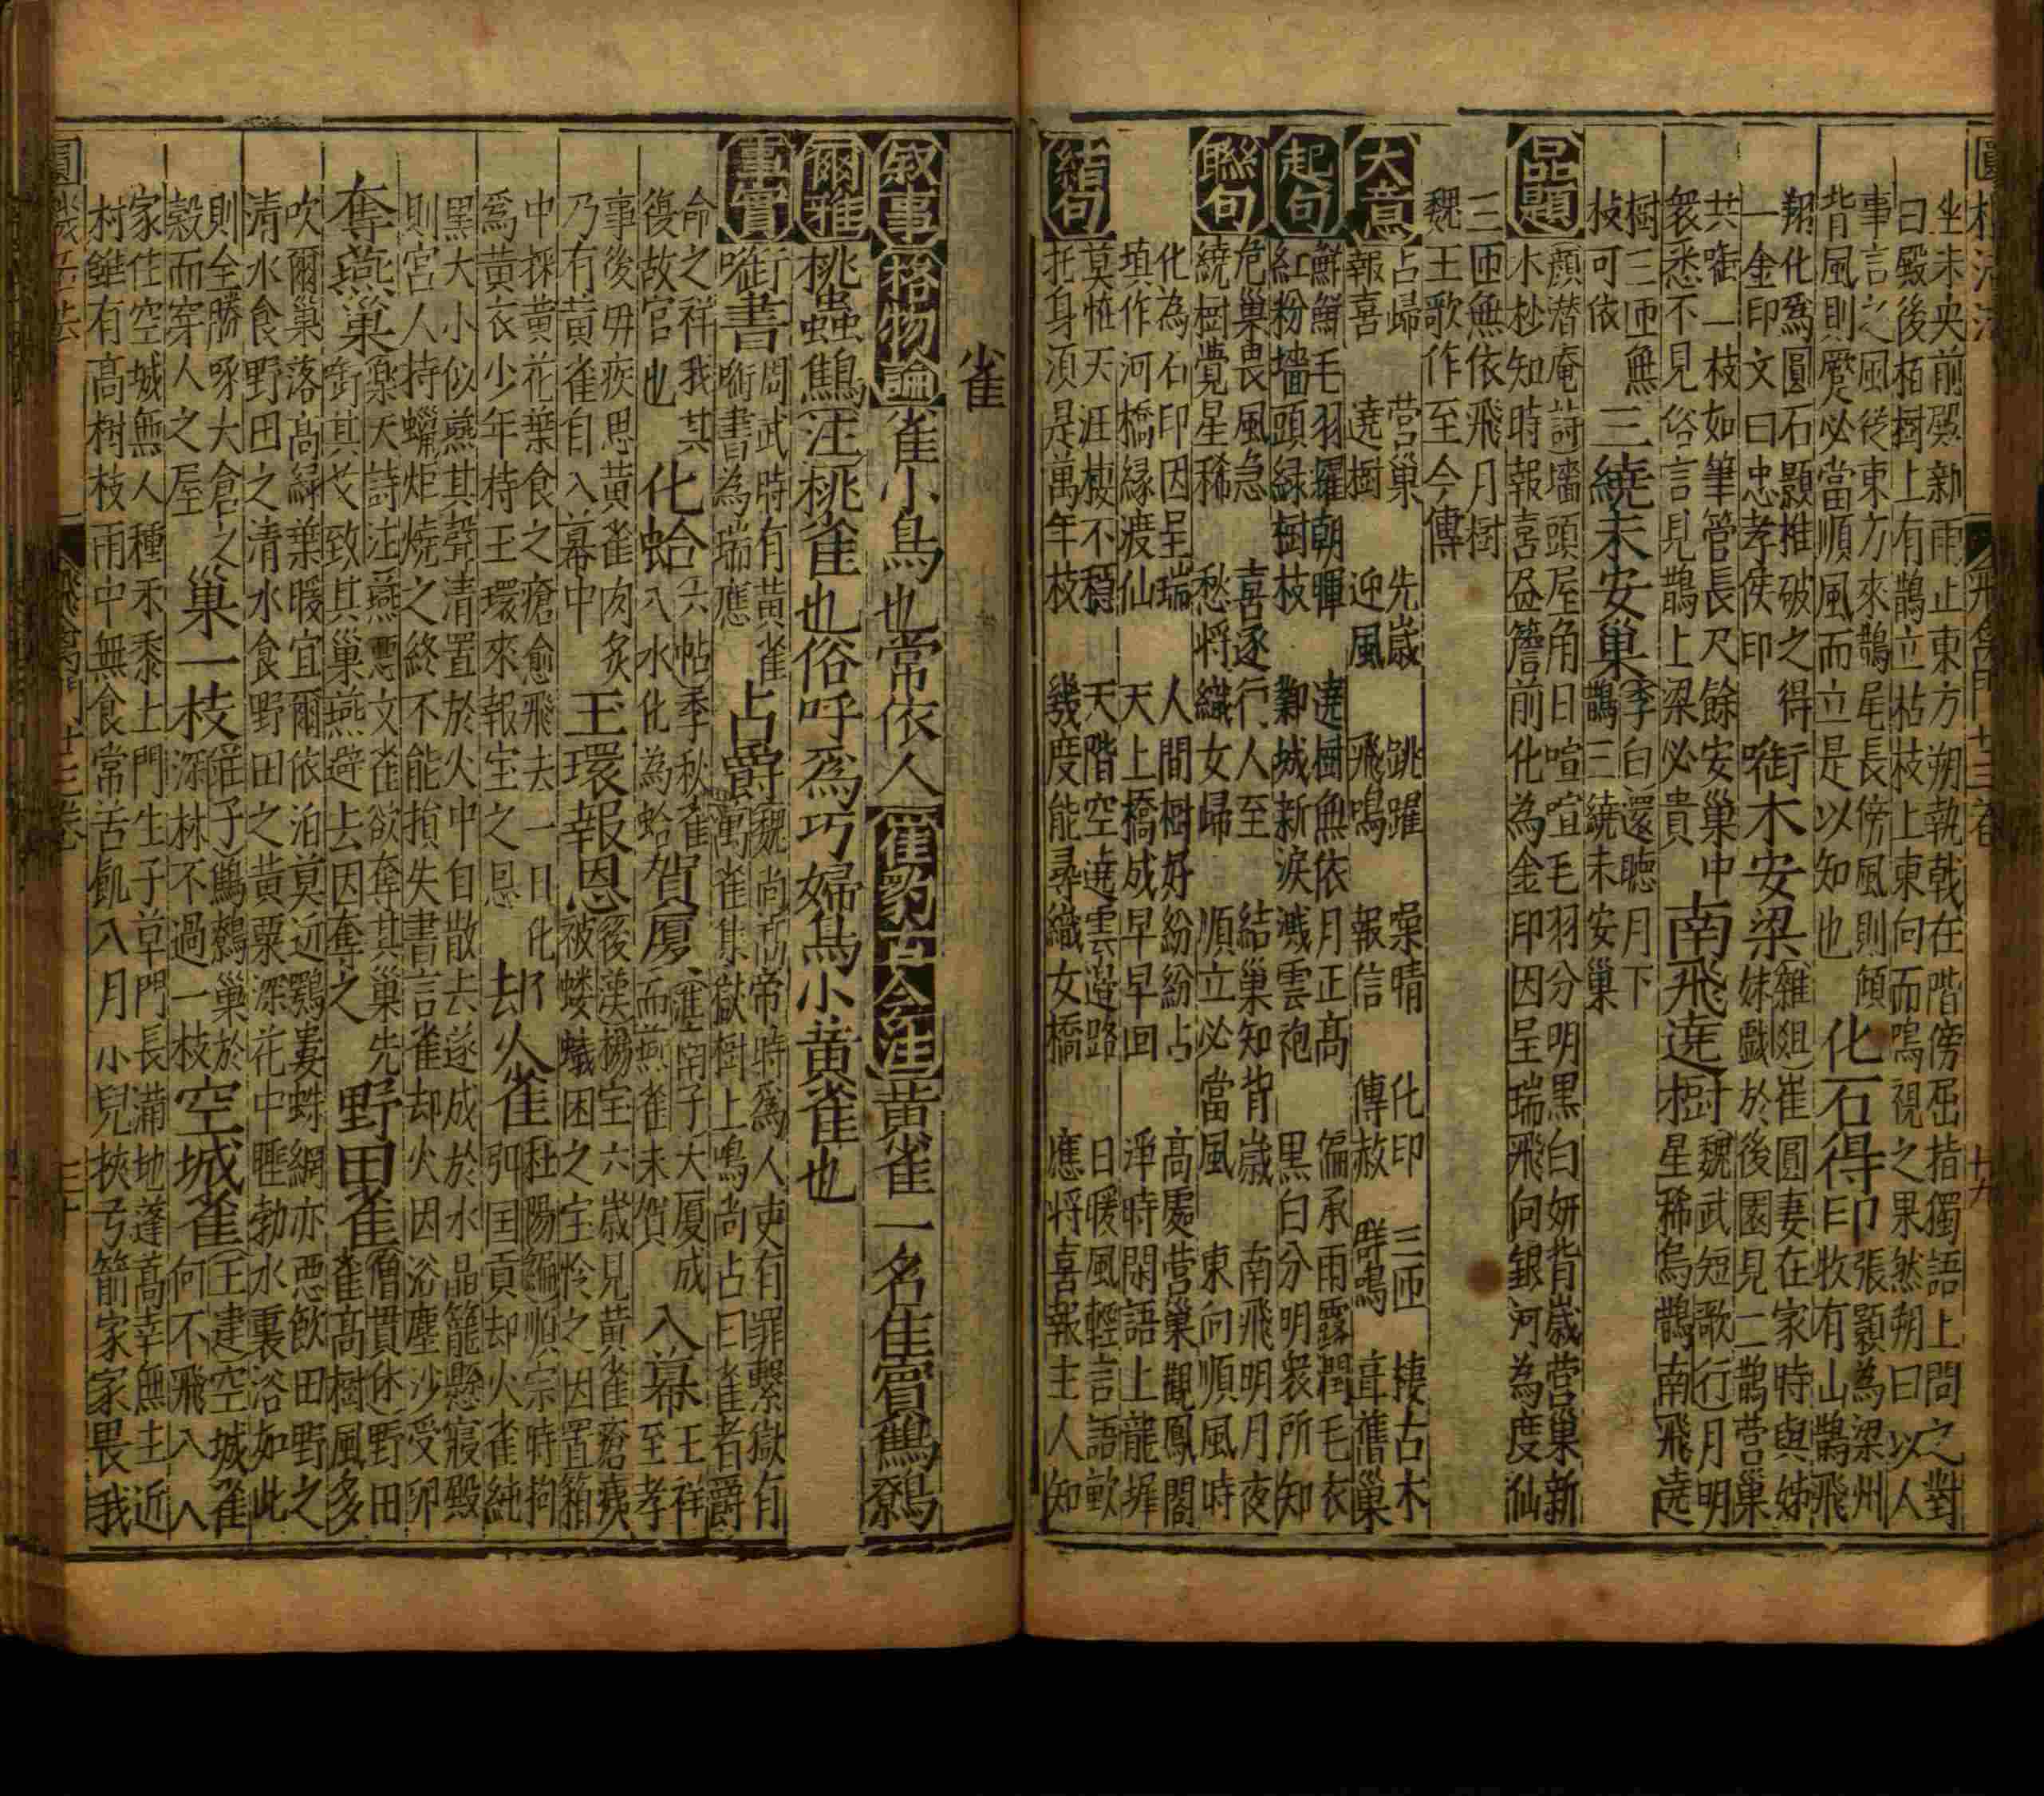 圓機活法
飛禽門 廿三卷
廿九
坐未央前殿新雨止東方朔執戟在階傍屈指獨語上問之對
曰殿後栢樹上有鵲立枯枝上東向而鳴視之果然朔曰以人
事言之風從東方來鵲尾長傍風則傾
背風則蹷必當順風而立是以知也
化石得印
張顥為梁州
牧有山鵲飛
翔化爲圓石顥推破之得
一金印文曰忠孝侯印
啣木安梁
(雜俎)崔圓妻在家時與姊
妹戱於後園見二鵲營巢
共啣一枝如筆管長尺餘安巢中
衆悉不見俗言見鵲上梁必貴
南飛遶樹
魏武短歌行月明
星稀烏鵲南飛遶
樹三匝無
枝可依
三繞未安巢
李白還聴月下
鵲三繞未安巢
品題
顏潜庵詩墻頭屋角日喧喧毛羽分明黑白妍背歳营巢新
木杪知時報喜忩簷前化為金印因呈瑞飛向銀河為度仙
三匝無依飛月樹
魏王歌作至今傳
大意
占歸 营巢 先歳 跳躍 噪晴 化印 三匝 棲古木
報喜 遶樹 迎風 飛鳴 報信 傳赦 群鳴 葺舊巢
起句
鮮鮮毛羽耀朝暉 遶樹無依月正髙 偏承雨露潤毛衣
紅粉墻頭緑樹枝 鄴城新淚濺雲袍 黒白分明衆所知
聯句
危巢畏風急 喜逐行人至 結巢知背歳 南飛明月夜
繞樹覺星稀 愁将織女歸 順立必當風 東向順風時
化為石印因呈瑞 人間樹好紛紛占 髙處营巢觀鳳閣
填作河橋縁渡仙 天上橋成早早回 淨時閑語上龍墀
結句
莫恠天涯棲不穩 天階空遶雲邉路 日暖風輕言語軟
托身湏是萬年枝 幾度能尋織女橋 應将喜報主人知
雀
叙事 格物論 雀小鳥也常依人 崔豹古今注 黄雀一名隹賔鷦鷯
爾雅 桃蟲鷦 注桃雀也俗呼爲巧婦鳥小黄雀也
事實
啣書
周武時有黄雀
啣書為瑞應
占爵
魏尚髙帝時爲人吏有罪繫獄有
萬雀集獄樹上鳴尚占曰雀者爵
命之祥我其
復故官也
化蛤
六帖季秋雀
入水化為蛤
賀厦
淮南子大厦成
而燕雀未賀
入幕
王祥
至孝
事後毋疾思黄雀肉炙
乃有黄雀自入幕中
玉環報恩
後漢楊宝六歳見黄雀瘡痍
被蝼蟻困之宝怜之因置箱
中採黄花葉食之瘡愈飛去一日化
爲黄衣少年持玉環來報宝之恩
却火雀
杜陽編順宗時拘
弭国貢却火雀純
黒大小似燕其聲清置於火中自散去遂成於水晶籠懸寝殿
則宮人持蠟炬燒之終不能損失書言雀却火因浴塵沙受卵
奪燕巢
樂天詩注燕悪文雀欲奪其巢先
啣其艾致其巢燕避去因奪之
野田雀
(僧貫休)野田
雀髙樹風多
吹爾巢落髙緑葉暖宜爾依泊莫近鶚妻蛛網亦悪飲田野之
清水食野田之清水食野田之黄粟深花中睡勃水裏浴如此
則全勝啄大倉之
穀而穿人之屋
巢一枝
莊子鷦鷯巢於
深林不過一枝
空城雀
(王建)空城雀
何不飛入人
家住空城無人種禾黍土門生子草門長滿地蓬蒿幸無主近
村雖有高樹枝雨中無食常苦飢八月小兒挾弓箭家家畏我